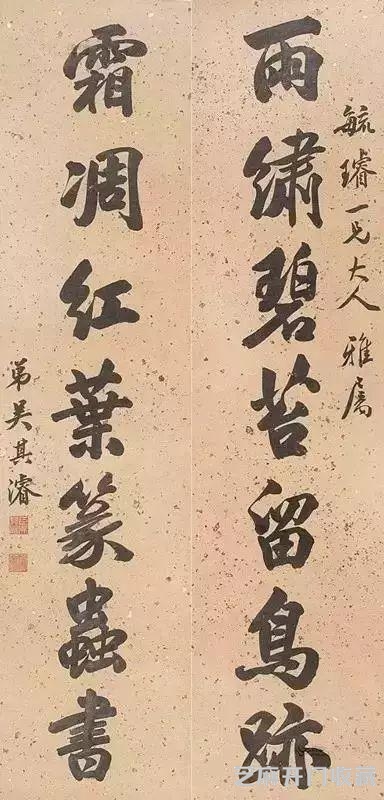 毓璿一兄大人雅屬
雨繡碧苔留鳥跡
霜凋紅葉篆蟲書
弟吳其濬